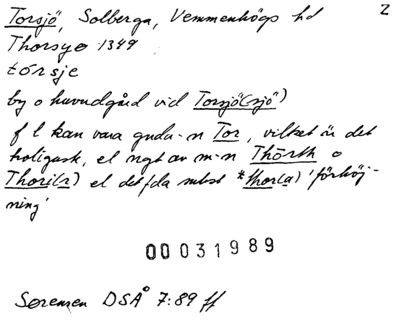 Torsjö, Solberga, Vemmenhögs hd 2
Thorsyo 1349
tórsje
by o huvudgård vid Torsjö(sjö)
f l kan vara guda-n Tor, vilket är det
troligast, el ngt av m-n Thörth o
Thori(r) el det fda subst *thor(a) 'förhöj-
ning'
00031989
Sørensen DSÅ 7:89 ff